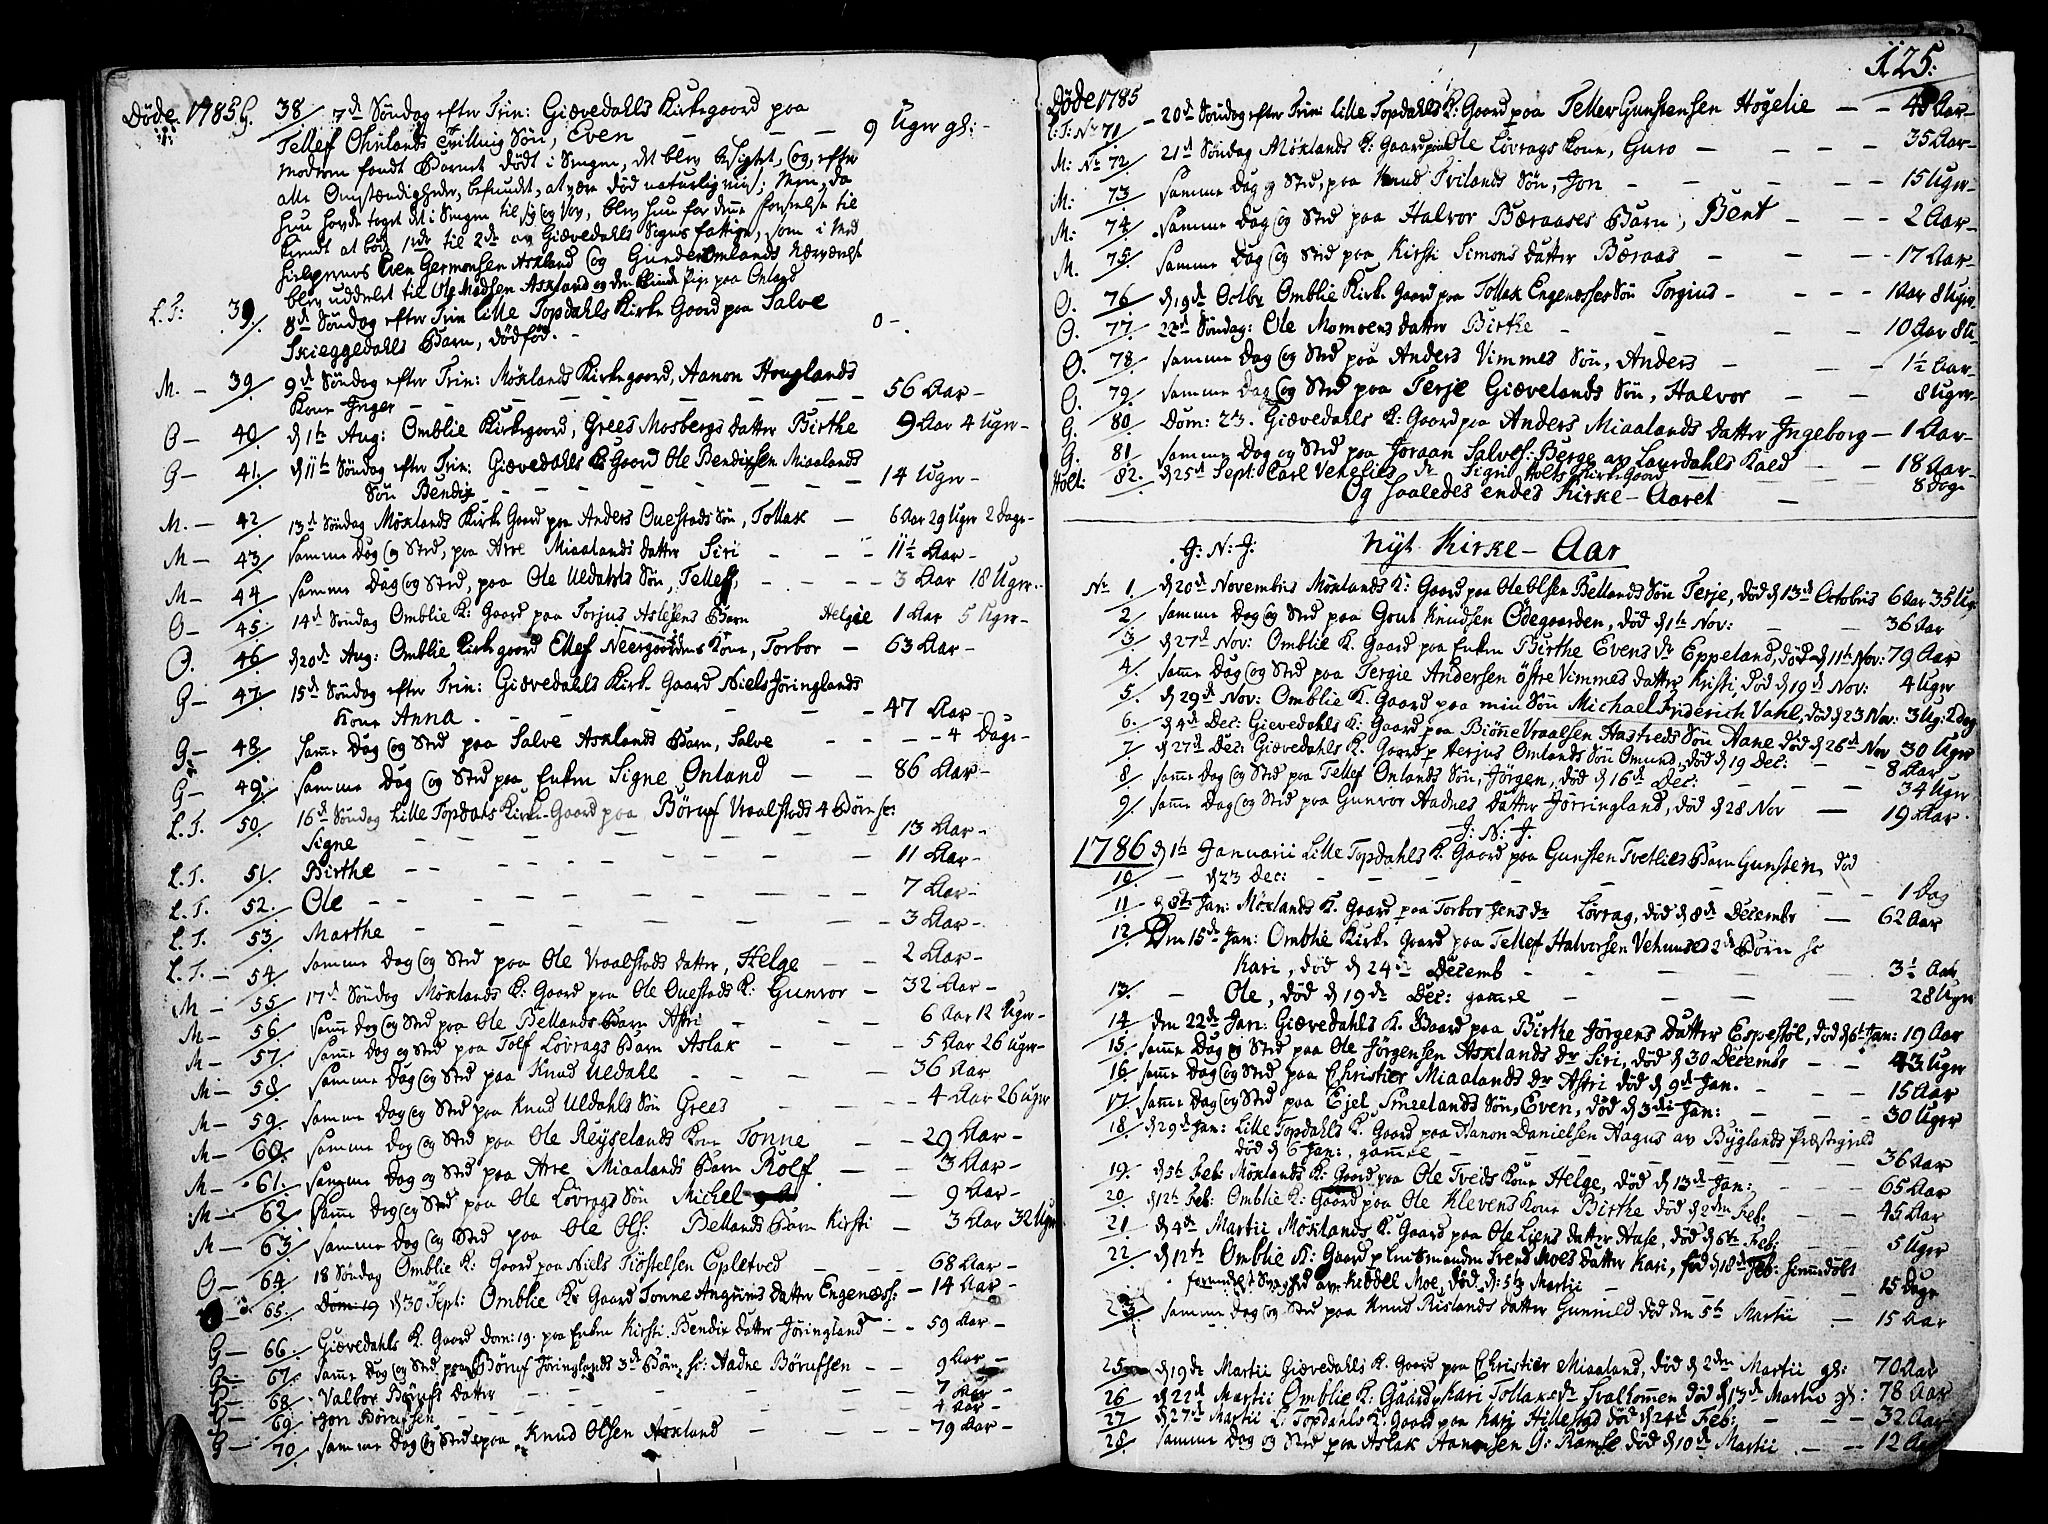 Døde. 1785 G. 38/ 7de Søndag efter Trin: Giævedahls Kirkegaard paa
Tellef Ohnlands Tvilling Søn, Even — — — 9 Uger gl: -
Modren fandt Barnet dødt i Sengen, det blev besigtet, og, efter
alle Omstændigheder, befundt, at være død naturligviis; Men, da
hun havde taget det i Sengen til sig og Vov, blev hun for denne Forseelse til
kiendt at bøde 1rdr til 2de av Giævedahls Sogns fattige, som i Med
hielpernes Even Germonsen Askland og Gunder Omlands Nærværelse
blev uddeelet til Ole Madsen Askland og den blinde Pige paa Onland
L.T: 39/. 8de Søndag efter Trin Lille Topdahls Kirke Gaard paa Salve
Skieggedahls Barn, dødfød. - 0 -.
M. — 39/ 9de Søndag efter Trin: Møklands Kirkegaard, Aanon Houglands
Kone Inger — — — — 56 Aar -
O — 40/. d 1te Aug: Omblie Kirkegaard, Grees Mosbergs Datter Birthe 9 Aar 4 Uger -
G — 41/. d 11te Søndag efter Trin: Giævedahls K: Gaard Ole Bendixsen Miaalands
Søn Bendix — — — — 14 Uger -
M. — 42/. 13de Søndag Møklands Kirke Gaard paa Anders Ouestads Søn, Tollak — 6 Aar 29 Uger 2 Dage -
M — 43/. samme Dag og Sted, paa Arre Miaalands Datter Siri — — 11½ Aar -
M — 44/. samme Dag og Sted, paa Ole Uedahls Søn, Tellef, — — 3 Aar 18 Uger..
O — 45/. 14de Søndag Omblie K: Gaard paa Torjus Aslesens Barn Helgie 1 Aar 5 Uger -
O. 46/. d 20de Aug: Omblie Kirkegaard Ellef Neergaardens Kone, Torbor — 63 Aar -
G — 47/. 15de Søndag efter Trin: Giævedahls Kirke Gaard Niels Jøringlands
Kone Anna. — — — 47 Aar -
G — 48/. Samme Dag og Sted paa Salve Asklands Barn, Salve — — 4 Dage -
G — 49/. Samme Dag og Sted paa Enken Signe Onland — — 86 Aar -
L.T. 50/. 16de Søndag Lille Topdals Kirke-Gaard paa Børuf Vraalstads 4 Børn se:
Signe — — — 13 Aar -
L.T. 51/. Birthe — — — 11 Aar -
L.T. 52. Ole — — — 7 Aar -
L.T. 53/ Marthe — — — 3 Aar -
L.T. — 54/. samme Dag og Sted paa Ole Vraalstads Datter, Helge — — 2 Aar -
M — 55/. 17de Søndag Møklands K: Gaard paa Ole Ouestads K: Gunvor — 32 Aar -
M — 56/. samme Dag og Sted paa Ole Bellands Barn Astri — 6 Aar 12 Uger -
M — 57/. samme Dag og Sted paa Tolf Løvrags Barn Aslak — 5 Aar 26 Uger -
M — 58/. samme Dag og Sted paa Knud Uedahl — — 36 Aar
M — 59/. samme Dag og Sted paa Knud Uldahls Søn Grees — 4 Aar 26 Uger
M — 60/. samme Dag og Sted paa Ole Reyselands Kone Tonne — 29 Aar -
M — 61/. samme Dag og Sted paa Arre Miaalands Barn Rolf — 3 Aar -
M — 62/. samme Dag og Sted paa Ole Løvrags Søn Michel — 9 Aar -
M — 63/. samme Dag og Sted paa Ole Ols: Bellands Barn Kirsti — 3 Aar 32 Uger
O — 64/. 18 Søndag Omblie K: Gaard paa Niels Tiøstelsen Epletved — 68 Aar -
65/. Dom: 19 d 30 Sept: Omblie K: Gaard Tonne Anguns Datter Engenæs: — 14 Aar -
G — 66/. Giævedahls K. Gaard Dom: 19. paa Enken Kirsti Bendix Datter Jøringland — 59 Aar -
G — 67/. samme Dag og Sted paa Børuf Jøringlands 3de Børn, se: Aadne Børufsen — 9 Aar -
G — 68/. Valbor Børufs Datter — — — 7 Aar -
G — 69/. Jon Børufsen — — — 4 Aar -
G — 70/. samme Dag og Sted paa Knud Olsen Askland — — 79 Aar -
125:
Døde 1785
L: T: No 71/. - 20de Søndag efter Trin: Lille Topdahls K: Gaard paa Tellev Gunstensen Høgelie — — 43 Aar -
M: No 72/. 21de Søndag Møklands K: Gaard paa Ole Løvrags Kone, Guro — — 35 Aar -
M: 73/ samme Dag og Sted, paa Knud Tvilands Søn, Jon — — 15 Uger -
M: 74/. samme Dag og Sted paa Halvor Bæraases Barn, Bent — — 2 Aar -
M. 75/. samme Dag og Sted paa Kirsti Simons Datter Bæraas — — 17 Aar -
O. 76/. d 19de Octbr Omblie Kirke Gaard paa Tollak Engenæsses Søn Torgius — — 1 Aar 8 Uger
O. 77/. 22de Søndag: Ole Momoens Datter Birthe — — 10 Aar 8 U -
O. 78/ samme Dag og Sted paa Anders Vimmes Søn, Anders — — 1½ Aar -
O. 79/. samme Dag og Sted paa Terje Giævelands Søn, Halvor — — 8 Uger -
G. 80/ Dom: 23. Giævedahls K: Gaard paa Anders Miaalands Datter Ingeborg — 1 Aar -
G. 81/ samme Dag og Sted paa Joraan Salves: Berge av Laurdahls Kald — — 18 Aar -
Holt: 82. d 25de Sept: Carl Vehelies dr Sigri Holts Kirke Gaard — 8 Dage
Og saaledes endes Kirke-Aaret —
J: N: J: Nyt Kirke-Aar
No 1. d 20de Novembris Møklands K: Gaard paa Ole Olsen Bellands Søn Terje, død d 13de Octobris 6 Aar 35 Ug:
2/ samme Dag og Sted paa Gout Knudsen Ødegaarden, død d 1te Nov: — 36 Aar
3/. d 27de Nov: Omblie K. Gaard paa Enken Birthe Evens dr Eppeland, død d 11te Nov: 79 Aar
4/. samme Dag og Sted paa Tergie Andersen østre Vimmes Datter Kristi, død d 19de Nov: 4 Uger
5/. d 29de Nov: Omblie K. Gaard paa min Søn Michael Friderich Vahl, død d 23 Nov: 3 Ug: 2 Dag
6./ d 4de Dec: Gievedahls K: Gaard paa Biørne Vraalsen Hastveds Søn Aane død d 26de Nov 30 Uger
7/ d 27de Dec: Giævedahls K. Gaard p Herjus Omlands Søn Omund, død d 19 Dec: — 8 Aar
8/ samme Dag og Sted paa Tellef Onlands Søn, Jørgen, død d 16de Dec: — 34 Uger
9/ samme Dag og Sted paa Gunvor Aadnes Datter Jørringland, død d 28 Nov — 19 Aar.
J: N: J.
1786 d 1te Januarii Lille Topdahls K. Gaard paa Gunsten Tvetlies Barn Gunsten, død
10/ — d 23 Dec: — — — 1 Dag
11/ d 8te Jan: Møklands K. Gaard paa Torbor Jens dr Løvrag, død d 8de Decembr — 62 Aar
12/ Den 15de Jan: Omblie Kirke Gaard paa Tellef Halvorsen Vehuuse 2de Børn se
Kari, død d 24de Decemb — — 3½ Aar
13/. — Ole, død d 19de Dec: gamel — — 28 Uger
14/. den 22de Jan: Giævedahls K: Gaard paa Birthe Jørgens Datter Espestøl, død d 6te Jan: 19 Aar
15./ samme Dag og Sted paa Ole Jørgensen Asklands dr Siri, død d 30 Decembr — — 43 Uger
16./ samme Dag og Sted paa Christier Miaalands dr Astri død d 9de Jan. — 15 Aar
17/. samme Dag og Sted paa Ejel Smeelands Søn, Even, død d 3die Jan: — 30 Uger
18/. d 29de Jan: Lille Topdahls K. Gaard paa Hanon Danielsen Aagus av Byglands Præstegield
død d 6 Jan:, gamel — — 36 Aar
19/. d 5te Feb: Møklands K: Gaard paa Ole Tveids Kone Helge, død d 13de Jan: — 65 Aar
20/ d 12te Feb: Omblie K: Gaard paa Ole Klevens Kone Birthe død d 2den Feb. — 45 Aar
21/ d 4de Martii Møklands K. Gaard paa Ole Liens Datter Aase, død d 6te Feb: — 5 Uger
22/ d 12te Omblie K: Gaard p Svend Moes Datter Kari, fød d 18de Feb: hiemmedøbt
formedelst Svaghed av Kiddel Moe, død. d: 5te Martii — 15 Dage
23/ samme Dag og Sted paa Knud Rislands Datter Gunnild død den 5te Martii — 15 Aar
25 d 19de Martii Giævedahls K. Gaard paa Christier Miaaland, død d 2den Martii gl: 70 Aar
26 d 22de Martii Omblie K: Gaard p Kari Tollaks dr Svalhommen død d 13de Martii gl: 78 Aar
27/ d 27de Martii L. Topdahls K. Gaard paa Kari Hillestad død d 24de Feb: — 32 Aar
28/. samme Dag og Sted paa Aslak Aanonsen G: Ramse død d 10de Martii — 12 Aar